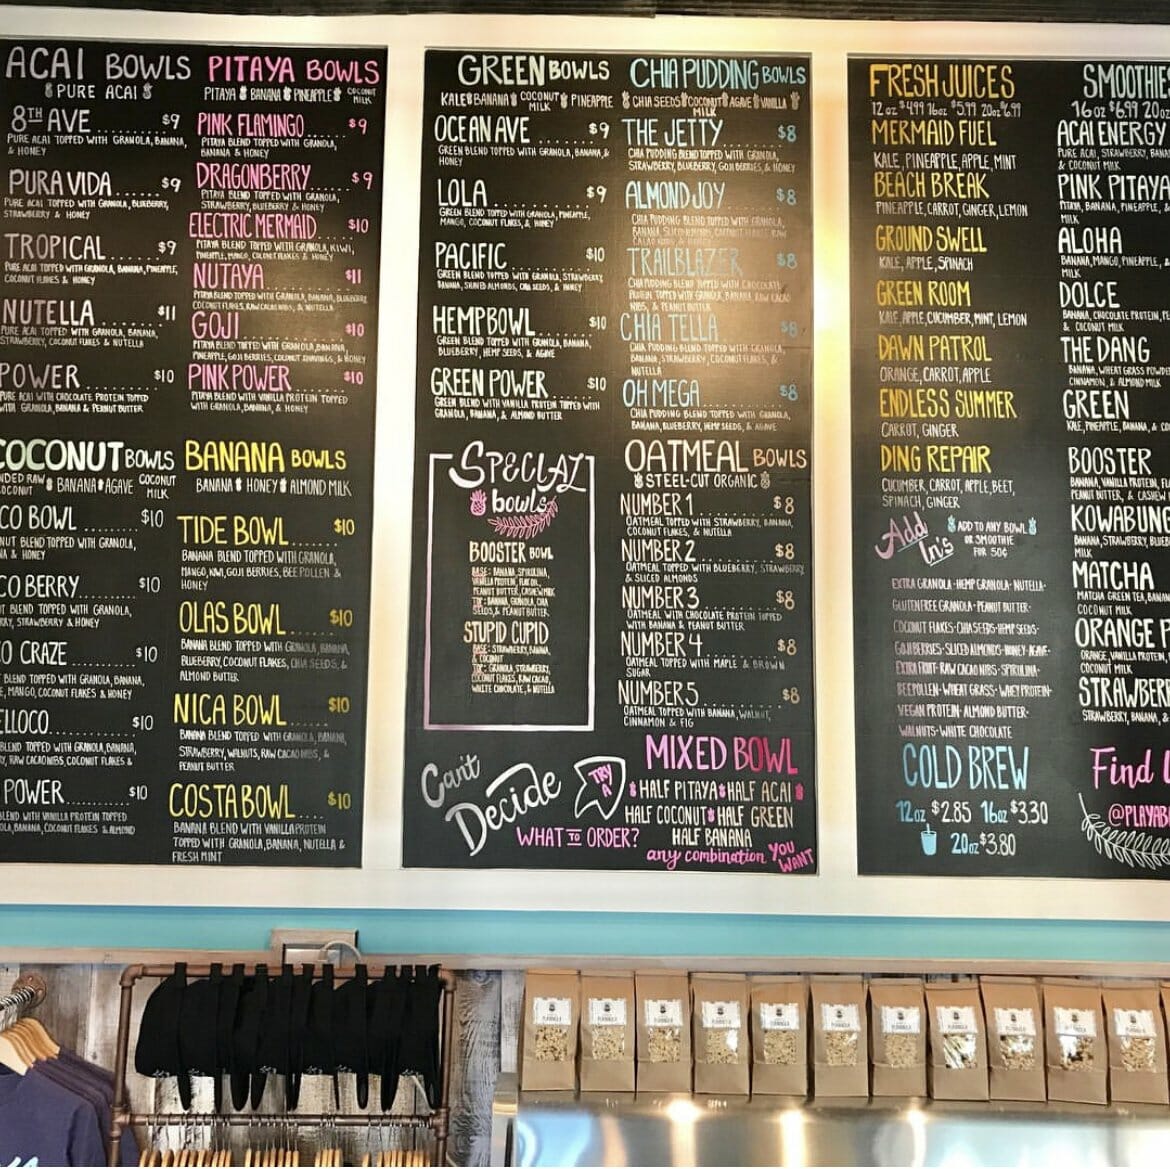 ACAI BOWLS
PURE ACAI
8TH AVE $9
PURE ACAI TOPPED WITH GRANOLA, BANANA,
& HONEY
PURA VIDA $9
PURE ACAI TOPPED WITH GRANOLA, BLUEBERRY,
STRAWBERRY & HONEY
TROPICAL $9
PURE ACAI TOPPED WITH GRANOLA, BANANA, PINEAPPLE,
COCONUT FLAKES & HONEY
NUTELLA $11
PURE ACAI TOPPED WITH GRANOLA, BANANA,
STRAWBERRY, COCONUT FLAKES & NUTELLA
POWER $10
PURE ACAI WITH CHOCOLATE PROTEIN TOPPED
WITH GRANOLA, BANANA & PEANUT BUTTER
COCONUT BOWLS
BANANA AGAVE COCONUT
MILK
CO BOWL $10
NUT BLEND TOPPED WITH GRANOLA,
& HONEY
CO BERRY $10
BLEND TOPPED WITH GRANOLA,
STRAWBERRY & HONEY
CRAZE $10
BLEND TOPPED WITH GRANOLA, BANANA,
MANGO, COCONUT FLAKES & HONEY
ELLOCO $10
BLEND TOPPED WITH GRANOLA, BANANA,
RAW CACAO NIBS, COCONUT FLAKES &
POWER $10
BLEND WITH VANILLA PROTEIN TOPPED
BANANA, COCONUT FLAKES & ALMOND
PITAYA BOWLS
PITAYA BANANA PINEAPPLE COCONUT
MILK
PINK FLAMINGO $9
PITAYA BLEND TOPPED WITH GRANOLA,
BANANA & HONEY
DRAGONBERRY $9
PITAYA BLEND TOPPED WITH GRANOLA,
STRAWBERRY, BLUEBERRY & HONEY
ELECTRIC MERMAID $10
PITAYA BLEND TOPPED WITH GRANOLA, KIWI,
PINEAPPLE, MANGO, COCONUT FLAKES & HONEY
NUTAYA $11
PITAYA BLEND TOPPED WITH GRANOLA, BANANA, BLUEBERRY
COCONUT FLAKES, RAW CACAO NIBS, & NUTELLA
GOJI $10
PITAYA BLEND TOPPED WITH GRANOLA, BANANA,
PINEAPPLE, GOJI BERRIES, COCONUT SHAVINGS, & HONEY
PINK POWER $10
PITAYA BLEND WITH VANILLA PROTEIN TOPPED
WITH GRANOLA, BANANA, & HONEY
BANANA BOWLS
BANANA HONEY ALMOND MILK
TIDE BOWL $10
BANANA BLEND TOPPED WITH GRANOLA,
MANGO, KIWI, GOJI BERRIES, BEE POLLEN &
HONEY
OLAS BOWL $10
BANANA BLEND TOPPED WITH GRANOLA, BANANA,
BLUEBERRY, COCONUT FLAKES, CHIA SEEDS, &
ALMOND BUTTER
NICA BOWL $10
BANANA BLEND TOPPED WITH GRANOLA, BANANA,
STRAWBERRY, WALNUTS, RAW CACAO NIBS, &
PEANUT BUTTER
COSTA BOWL $10
BANANA BLEND WITH VANILLA PROTEIN
TOPPED WITH GRANOLA, BANANA, NUTELLA &
FRESH MINT
GREEN BOWLS
KALE BANANA COCONUT PINEAPPLE
MILK
OCEAN AVE $9
GREEN BLEND TOPPED WITH GRANOLA, BANANA, &
HONEY
LOLA $9
GREEN BLEND TOPPED WITH GRANOLA, PINEAPPLE,
MANGO, COCONUT FLAKES, & HONEY
PACIFIC $10
GREEN BLEND TOPPED WITH GRANOLA, STRAWBERRY,
BANANA, SLICED ALMONDS, CHIA SEEDS, & HONEY
HEMP BOWL $10
GREEN BLEND TOPPED WITH GRANOLA, BANANA,
BLUEBERRY, HEMP SEEDS, & AGAVE
GREEN POWER $10
GREEN BLEND WITH VANILLA PROTEIN TOPPED WITH
GRANOLA, BANANA, & ALMOND BUTTER
SPECIAL
bowls
BOOSTER BOWL
BASE: BANANA, SPIRULINA,
VANILLA PROTEIN, FLAX OIL,
PEANUT BUTTER, CASHEW MILK
TOP: BANANA, GRANOLA, CHIA
SEEDS, & PEANUT BUTTER
STUPID CUPID
BASE: STRAWBERRY, BANANA,
& COCONUT
TOP: GRANOLA, STRAWBERRY,
COCONUT FLAKES, RAW CACAO,
WHITE CHOCOLATE, & NUTELLA
CHIA PUDDING BOWLS
CHIA SEEDS COCONUT AGAVE VANILLA
MILK
THE JETTY $8
CHIA PUDDING TOPPED WITH GRANOLA,
STRAWBERRY, BLUEBERRY, GOJI BERRIES, & HONEY
ALMOND JOY $8
CHIA PUDDING BLEND TOPPED WITH GRANOLA,
BANANA, SLICED ALMONDS, COCONUT FLAKES, RAW
CACAO NIBS & HONEY
TRAILBLAZER $8
CHIA PUDDING BLEND TOPPED WITH CHOCOLATE
PROTEIN TOPPED WITH GRANOLA, BANANA, RAW CACAO
NIBS, & PEANUT BUTTER
CHIA TELLA $8
CHIA PUDDING BLEND TOPPED WITH GRANOLA,
BANANA, STRAWBERRY, COCONUT FLAKES, &
NUTELLA
OH MEGA $8
CHIA PUDDING BLEND TOPPED WITH GRANOLA,
BANANA, BLUEBERRY, HEMP SEEDS, & AGAVE
OATMEAL BOWLS
STEEL-CUT ORGANIC
NUMBER 1 $8
OATMEAL TOPPED WITH STRAWBERRY, BANANA,
COCONUT FLAKES, & NUTELLA
NUMBER 2 $8
OATMEAL TOPPED WITH BLUEBERRY, STRAWBERRY
& SLICED ALMONDS
NUMBER 3 $8
OATMEAL WITH CHOCOLATE PROTEIN TOPPED
WITH BANANA & PEANUT BUTTER
NUMBER 4 $8
OATMEAL TOPPED WITH MAPLE & BROWN
SUGAR
NUMBER 5 $8
OATMEAL TOPPED WITH BANANA, WALNUT,
CINNAMON & FIG
Can't
Decide
WHAT TO ORDER?
TRY
A
MIXED BOWL
HALF PITAYA HALF ACAI
HALF COCONUT HALF GREEN
HALF BANANA
any combination YOU
WANT
FRESH JUICES
12 oz $4.99 16oz $5.99 20oz $6.99
MERMAID FUEL
KALE, PINEAPPLE, APPLE, MINT
BEACH BREAK
PINEAPPLE, CARROT, GINGER, LEMON
GROUND SWELL
KALE, APPLE, SPINACH
GREEN ROOM
KALE, APPLE, CUCUMBER, MINT, LEMON
DAWN PATROL
ORANGE, CARROT, APPLE
ENDLESS SUMMER
CARROT, GINGER
DING REPAIR
CUCUMBER, CARROT, APPLE, BEET,
SPINACH, GINGER
Add
In's
ADD TO ANY BOWL
OR SMOOTHIE
FOR 50¢
EXTRA GRANOLA · HEMP GRANOLA · NUTELLA ·
GLUTENFREE GRANOLA · PEANUT BUTTER ·
COCONUT FLAKES · CHIA SEEDS · HEMP SEEDS ·
GOJI BERRIES · SLICED ALMONDS · HONEY · AGAVE ·
EXTRA FRUIT · RAW CACAO NIBS · SPIRULINA ·
BEE POLLEN · WHEAT GRASS · WHEY PROTEIN ·
VEGAN PROTEIN · ALMOND BUTTER ·
WALNUTS · WHITE CHOCOLATE
COLD BREW
12oz $2.85 16oz $3.30
20oz $3.80
SMOOTHIE
16 oz $6.99 20 oz
ACAI ENERGY
PURE ACAI, STRAWBERRY, BANA
& COCONUT MILK
PINK PITAYA
PITAYA, BANANA, PINEAPPLE, &
MILK
ALOHA
BANANA, MANGO, PINEAPPLE, &
MILK
DOLCE
BANANA, CHOCOLATE PROTEIN,
& COCONUT MILK
THE DANG
BANANA, WHEAT GRASS POWDE
CINNAMON, & ALMOND MILK
GREEN
KALE, PINEAPPLE, BANANA, & CO
BOOSTER
BANANA, VANILLA PROTEIN,
PEANUT BUTTER, & CASHEW
KOWABUNG
BANANA, STRAWBERRY, BLUEB
MILK
MATCHA
MATCHA GREEN TEA, BANAN
COCONUT MILK
ORANGE
ORANGE, VANILLA PROTEIN,
COCONUT MILK
STRAWBER
STRAWBERRY, BANANA, &
Find U
@PLAYAB